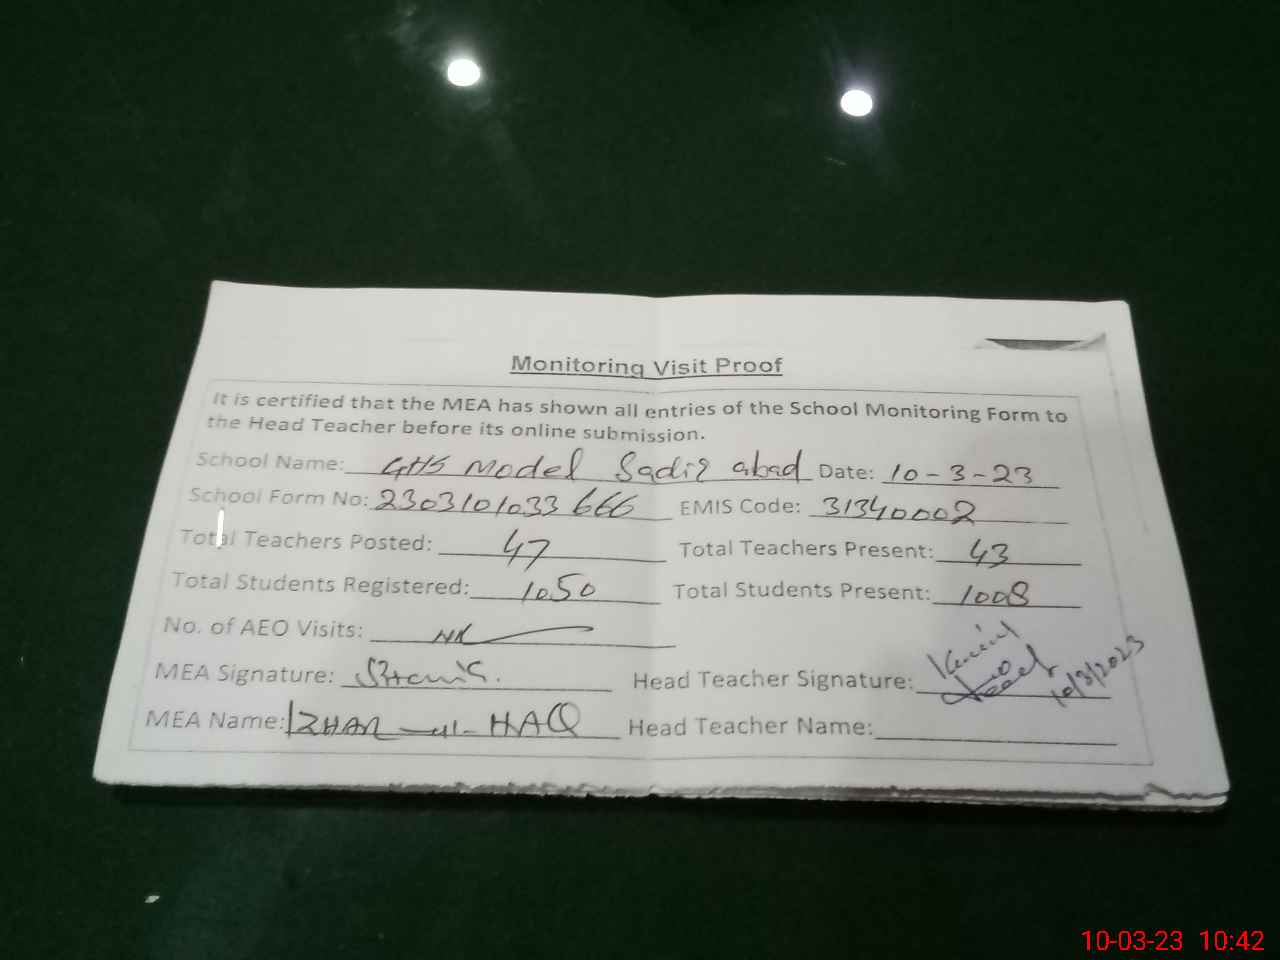 Monitoring Visit Proof
It is certified that the MEA has shown all entries of the School Monitoring Form to
the Head Teacher before its online submission.
School Name: GHS Model Sadiq abad Date: 10-3-23
School Form No: 2303101033666 EMIS Code: 31340002
Total Teachers Posted: 47 Total Teachers Present: 43
Total Students Registered: 1050 Total Students Present: 1008
No. of AEO Visits:
MEA Signature: Head Teacher Signature: 10/3/2023
MEA Name: IZHAR-ul-HAQ Head Teacher Name:
10-03-23 10:42